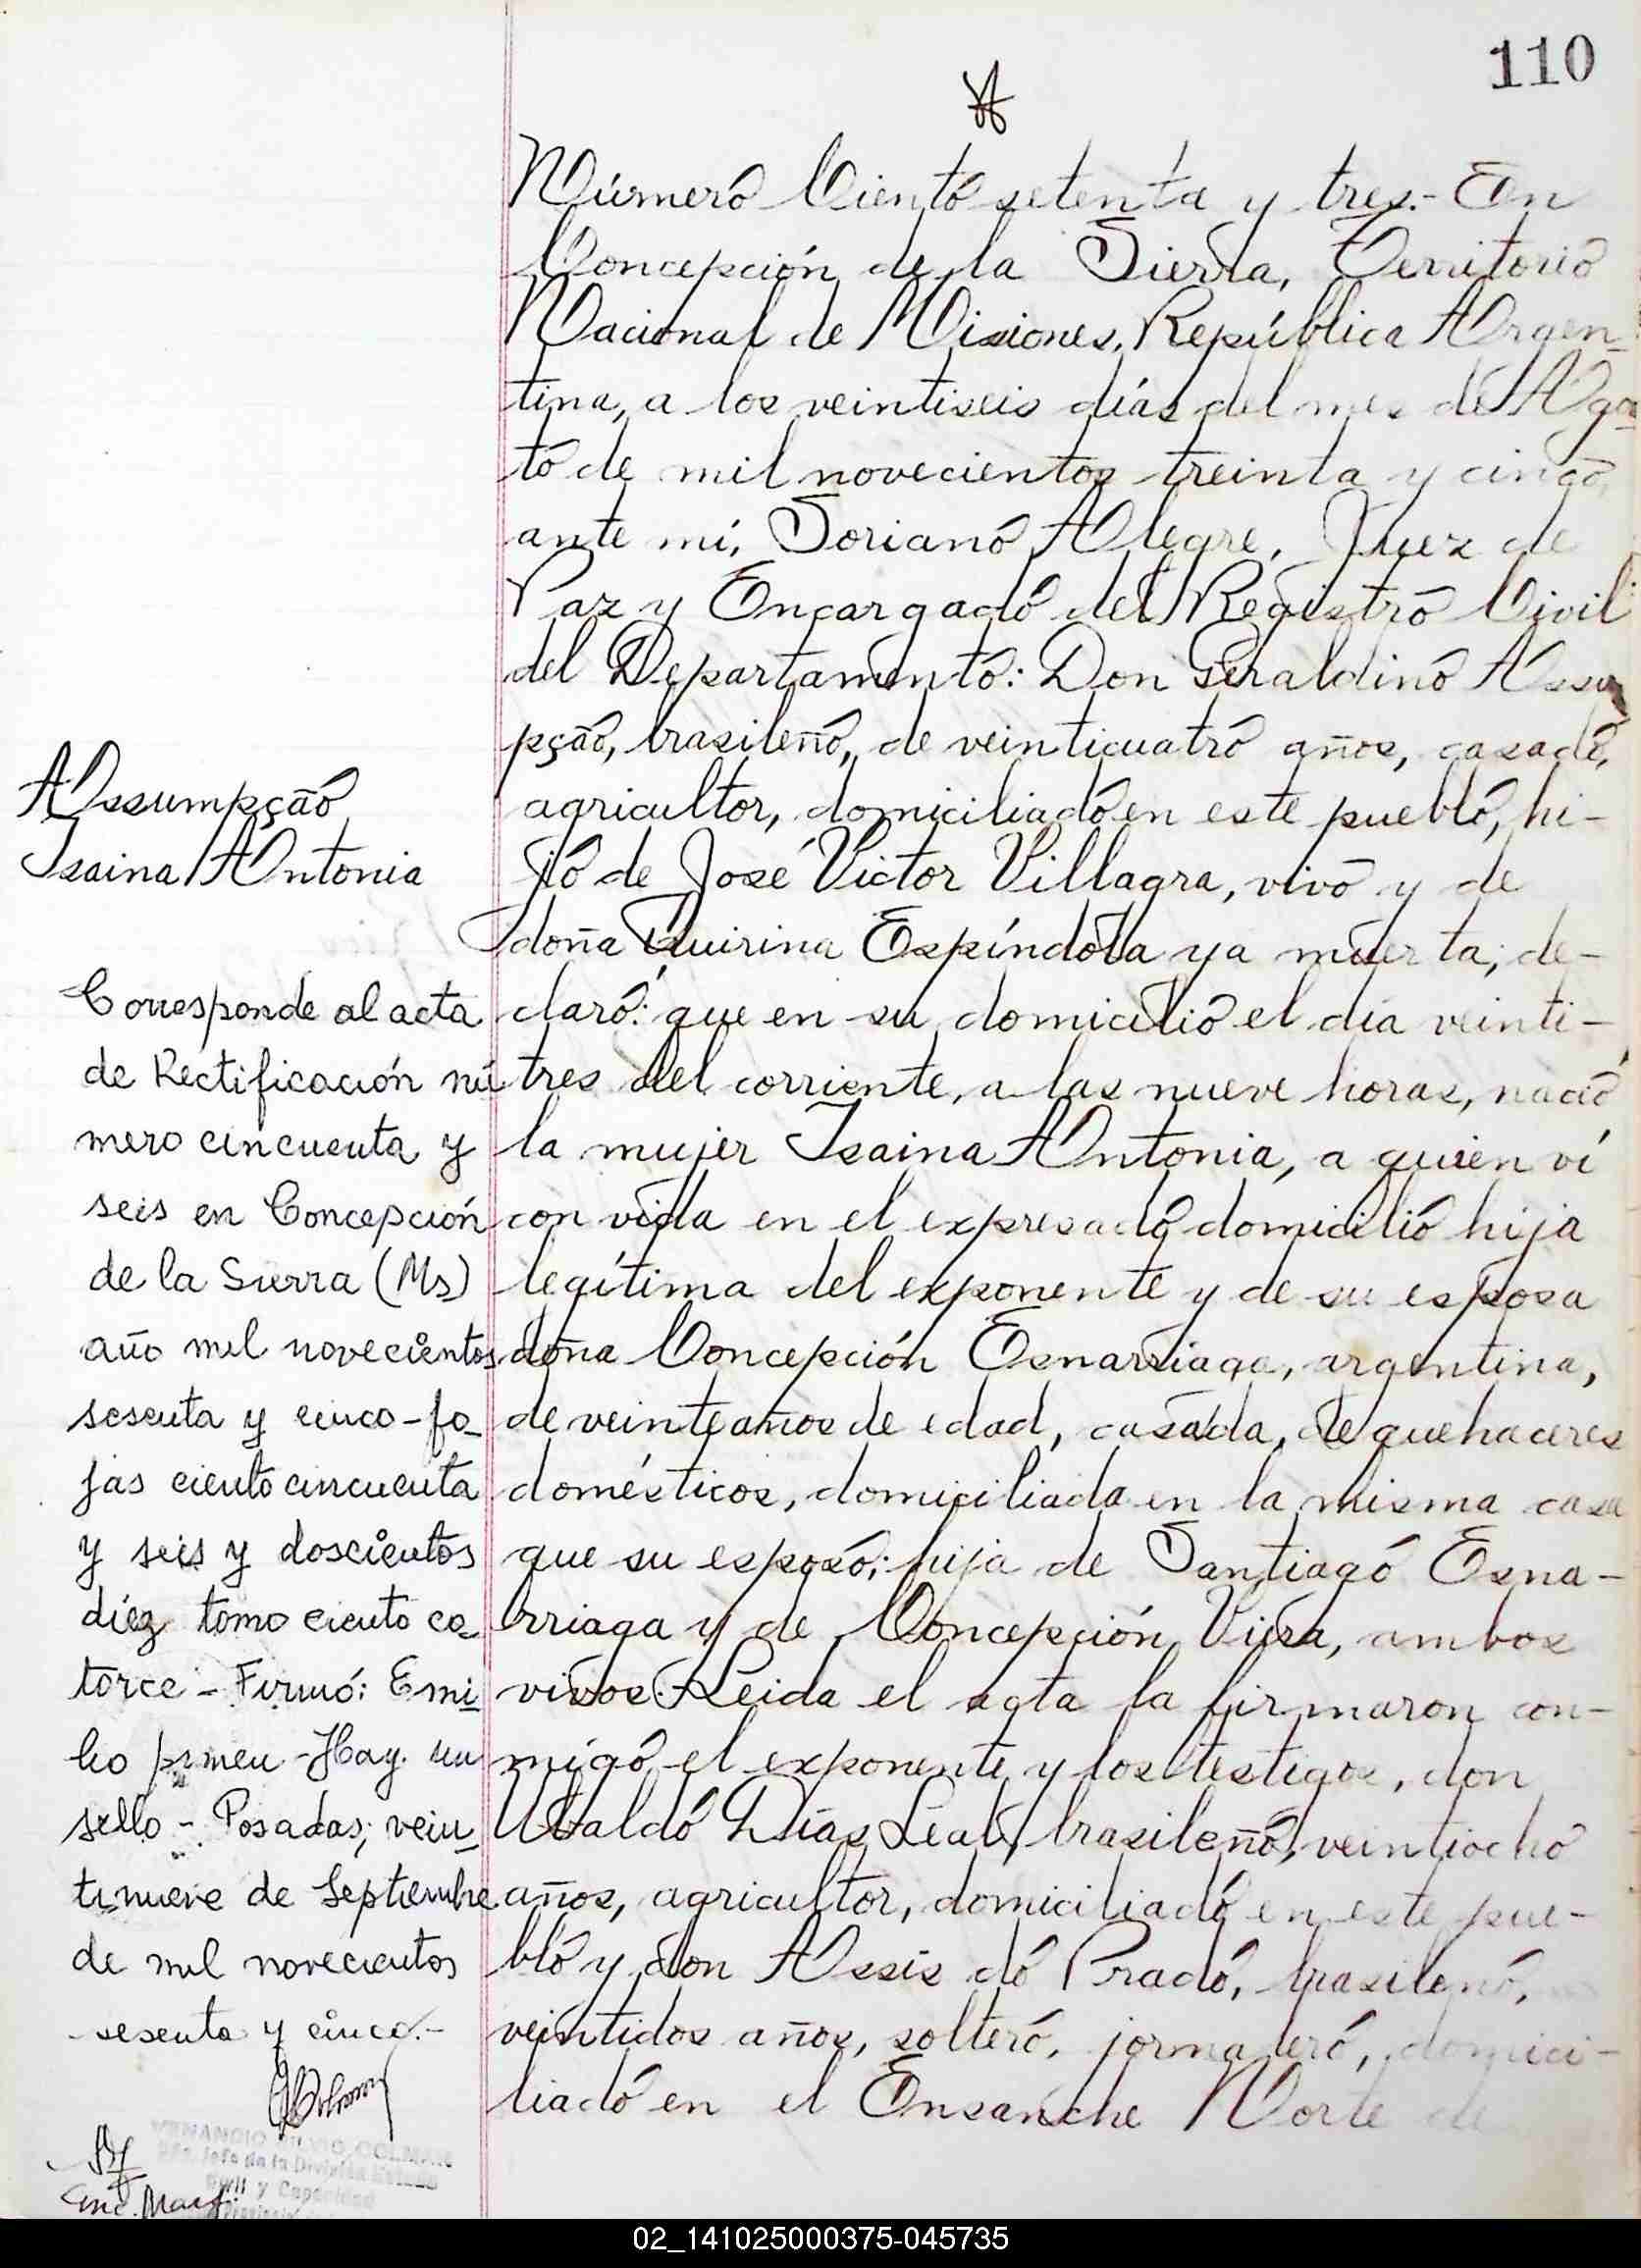 110
Número Ciento setenta y tres.- En
Concepción de la Sierra, Territorio
Nacional de Misiones, República Argen-
tina, a los veintiseis días del mes de Agos-
to de mil novecientos treinta y cinco,
ante mí, Soriano Alegre, Juez de
Paz y Encargado del Registro Civil
del Departamento: Don Geraldino Assu
pção, brasileño, de veinticuatro años, casado,
agricultor, domiciliado en este pueblo, hi-
jo de José Victor Villagra, vivo y de
doña Quirina Espíndola ya muerta; de-
claró: que en su domicilio el día veinti-
tres del corriente, a las nueve horas, nació
la mujer Isaina Antonia, a quien ví
con vida en el expresado domicilio hija
legítima del exponente y de su esposa
doña Concepción Esnarriaga, argentina,
de veinte años de edad, casada, de quehaceres
domésticos, domiciliada en la misma casa
que su esposo; hija de Santiago Esna-
rriaga y de Concepción Viera, ambos
vivos.- Leida el acta la firmaron con-
migo el exponente y los testigos, don
Ubaldo Días Leal, brasileño, veintiocho
años, agricultor, domiciliado en este pue-
blo y don Assis do Prado, brasileño,
veintidos años, soltero, jornalero, domici-
liado en el Ensanche Norte de
Assumpção
Isaina Antonia
Corresponde al acta
de Rectificación nú
mero cincuenta y
seis en Concepción
de la Sierra (Ms)
año mil novecientos
sesenta y cinco - fo_
jas ciento cincuenta
y seis y doscientos
diez tomo ciento ca_
torce - Firmó: Emi_
lio - Hay un
sello - Posadas; vein_
tinueve de Septiembre
de mil novecientos
sesenta y cinco.-
VENANCIO SILVIO COLMAN
Jefe de la División Estado
Civil y Capacidad
02_141025000375-045735